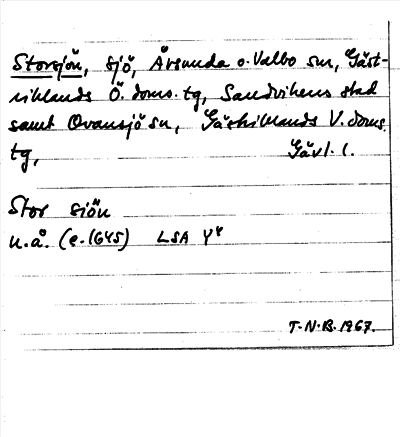 Storsjön, sjö, Årsunda o. Valbo snr, Gäst-
riklands Ö. doms. tg, Sandvikens stad
samt Ovansjö sn, Gästriklands V. doms.
tg, Gävl. l.
Stor siön
u.å. (e. 1645) LSA Y⁴
T.N.B. 1967.